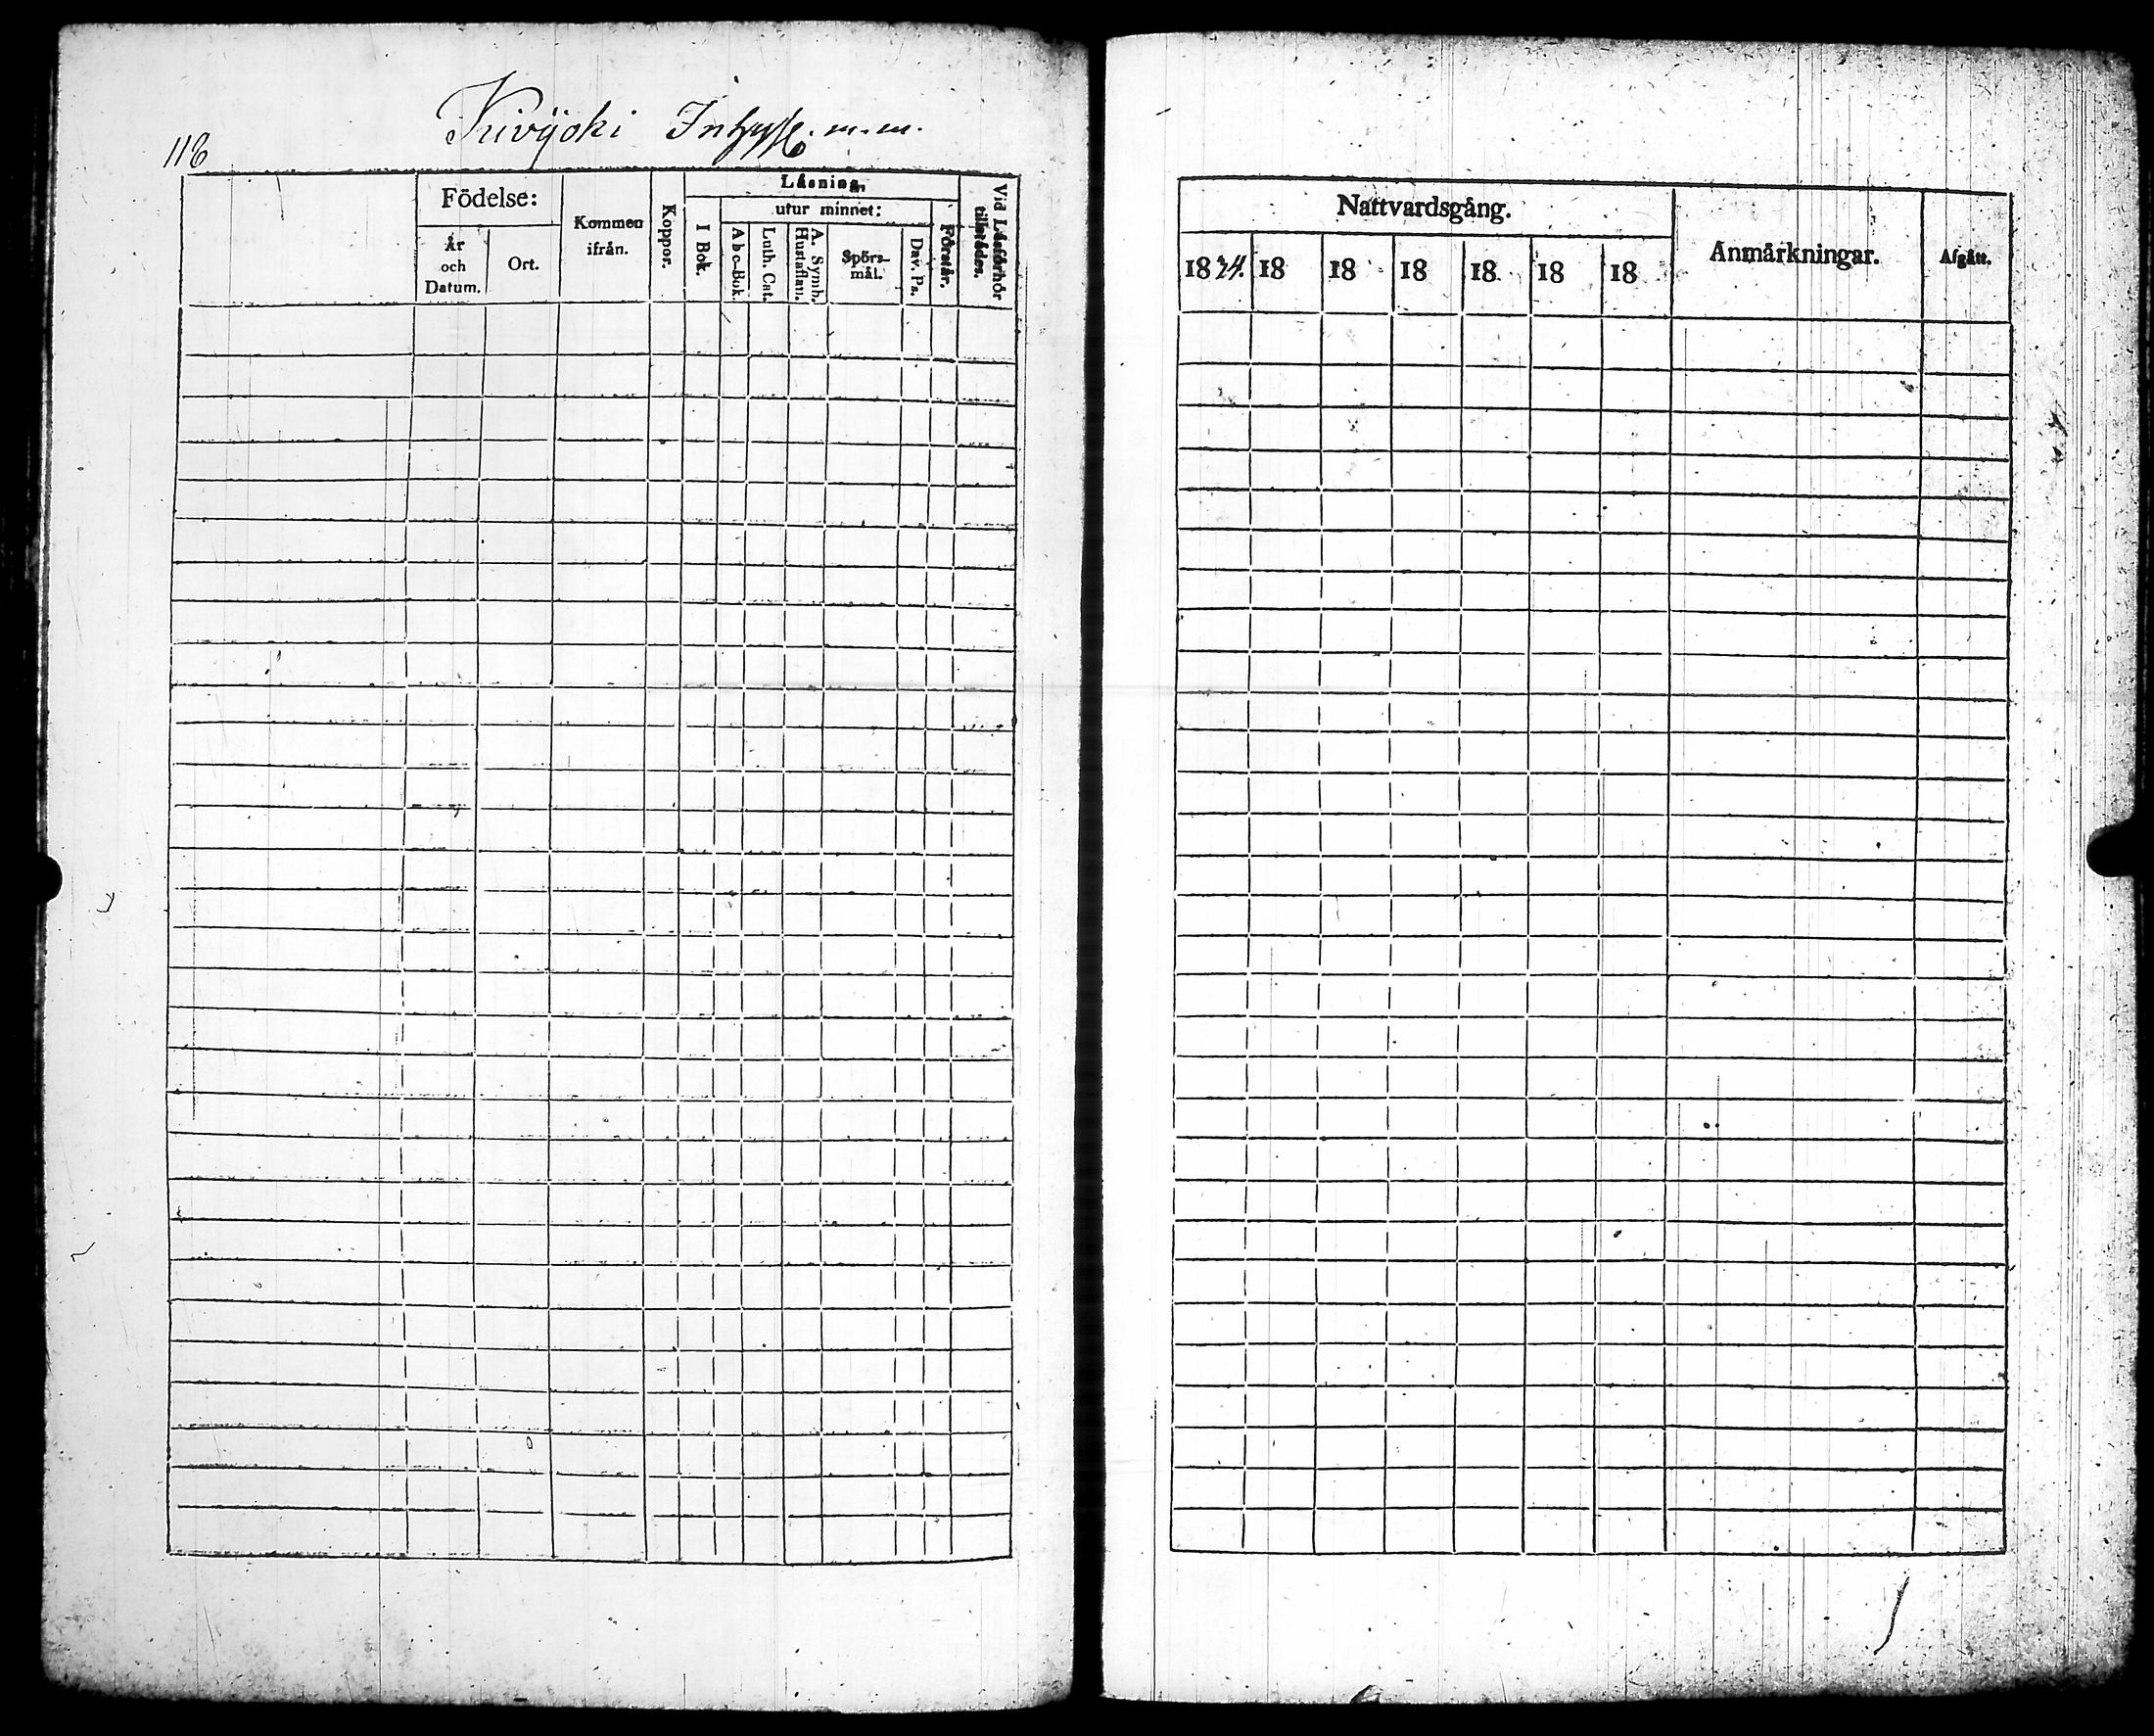 Kivijoki Inhyss. m.m.
118
Födelse:
År och Datum.
Ort.
Kommen ifrån.
Koppor.
Läsning.
I Bok.
utur minnet:
Abc-Bok.
Luth. Cat.
A. Symb. Hustaflan.
Spörs-mål.
Dav. Ps.
Förstår.
Vid Läsförhör tillstädes.
Nattvardsgång.
1824. 18 18 18 18 18 18
Anmärkningar.
Afgått.